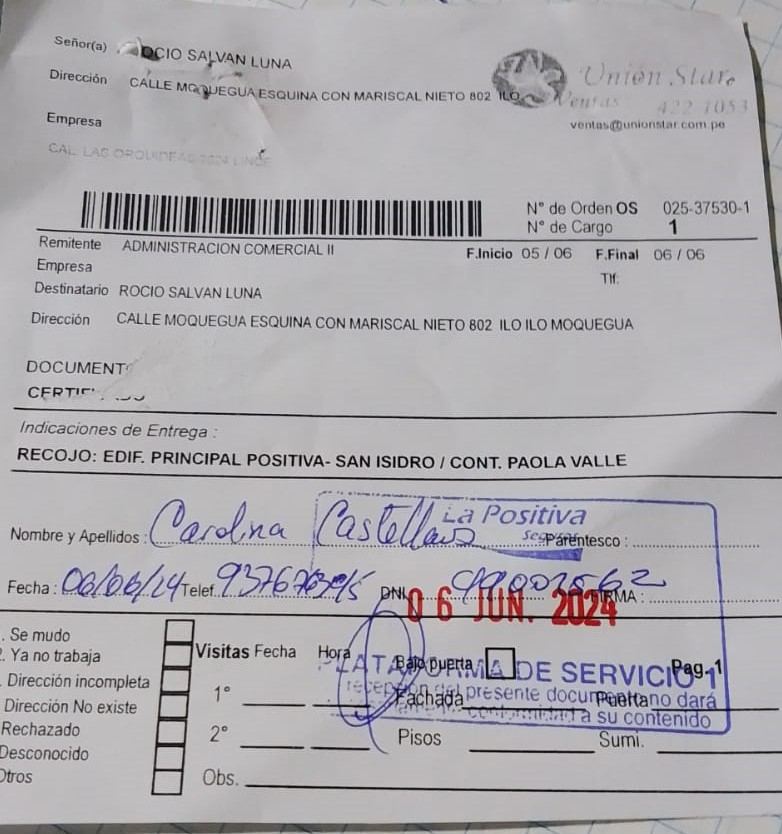 Señor(a) ROCIO SALVAN LUNA
Dirección CALLE MOQUEGUA ESQUINA CON MARISCAL NIETO 802 ILO
Empresa
CAL. LAS ORQUIDEAS LINCE
Unión Star
Ventas 422 1053
ventas@unionstar.com.pe
N° de Orden OS 025-37530-1
N° de Cargo 1
Remitente ADMINISTRACION COMERCIAL II
F.Inicio 05 / 06 F.Final 06 / 06
Empresa
Tlf:
Destinatario ROCIO SALVAN LUNA
Dirección CALLE MOQUEGUA ESQUINA CON MARISCAL NIETO 802 ILO ILO MOQUEGUA
DOCUMENT
Indicaciones de Entrega :
RECOJO: EDIF. PRINCIPAL POSITIVA- SAN ISIDRO / CONT. PAOLA VALLE
La Positiva
Nombre y Apellidos : Carolina Parentesco :
Fecha : 06/06/24 Telef. DNI
06 JUN. 2024
. Se mudo
2. Ya no trabaja
. Dirección incompleta
Dirección No existe
Rechazado
Desconocido
Otros
Visitas Fecha Hora
1°
2°
Obs.
Bajo puerta Pag. 1
PLATAFORMA DE SERVICIO
Fachada Puerta
presente documento no dará
conformidad a su contenido
Pisos Sumi.